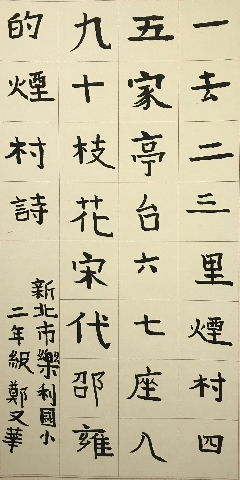 一去二三里煙村四
五家亭台六七座八
九十枝花宋代邵雍
的煙村詩
新北市樂利國小
二年級鄭又華